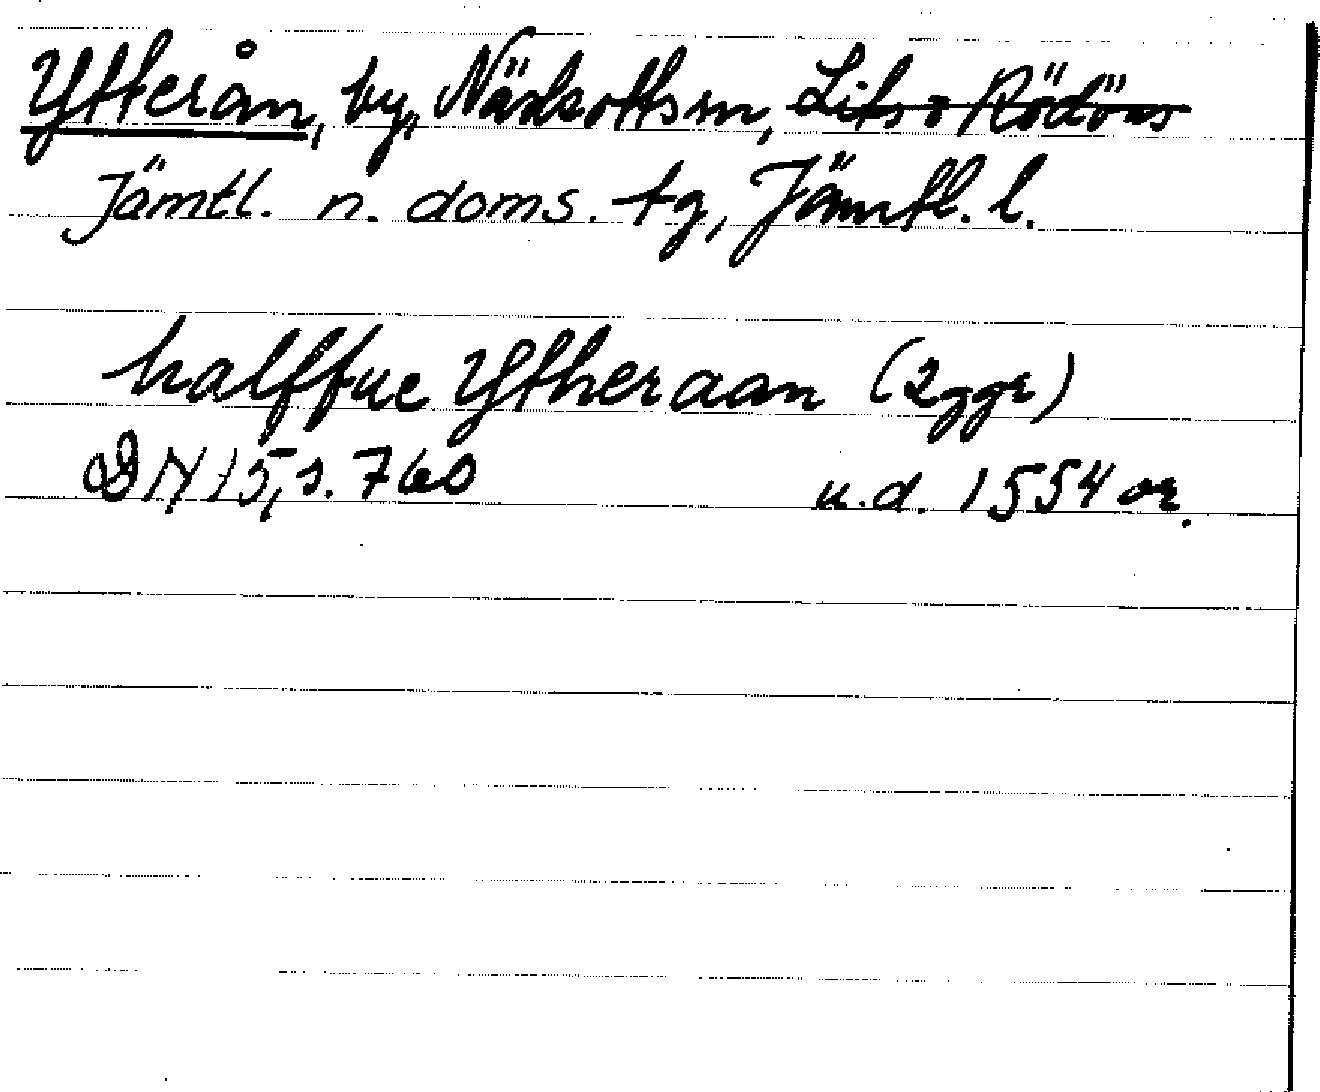 Ytterån, by, Näskotts sn, Lits o Rödöns
Jämtl. n. doms. tg, Jämtl. l.
halffue Ytheraan (2 ggr)
DN 15, s. 760 u.d. 1554 or.